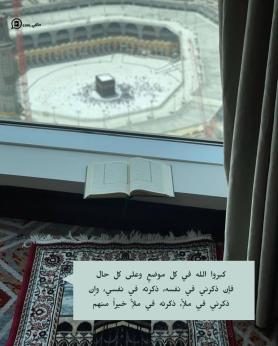 كبروا الله في كل موضع وعلى كل حال
فإن ذكرني في نفسه، ذكرته في نفسي، وإن
ذكرني في ملأ، ذكرته في ملأ خيراً منهم